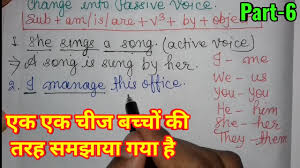 Change into Passive Voice.
Part-6
Sub + am/is/are + v³ + by + obje
1. She sings a song. (active voice)
→ A song is sung by her.
2. I manage this office.
I - me
We - us
You - you
He - him
She - her
They - them
एक एक चीज बच्चों की
तरह समझाया गया है